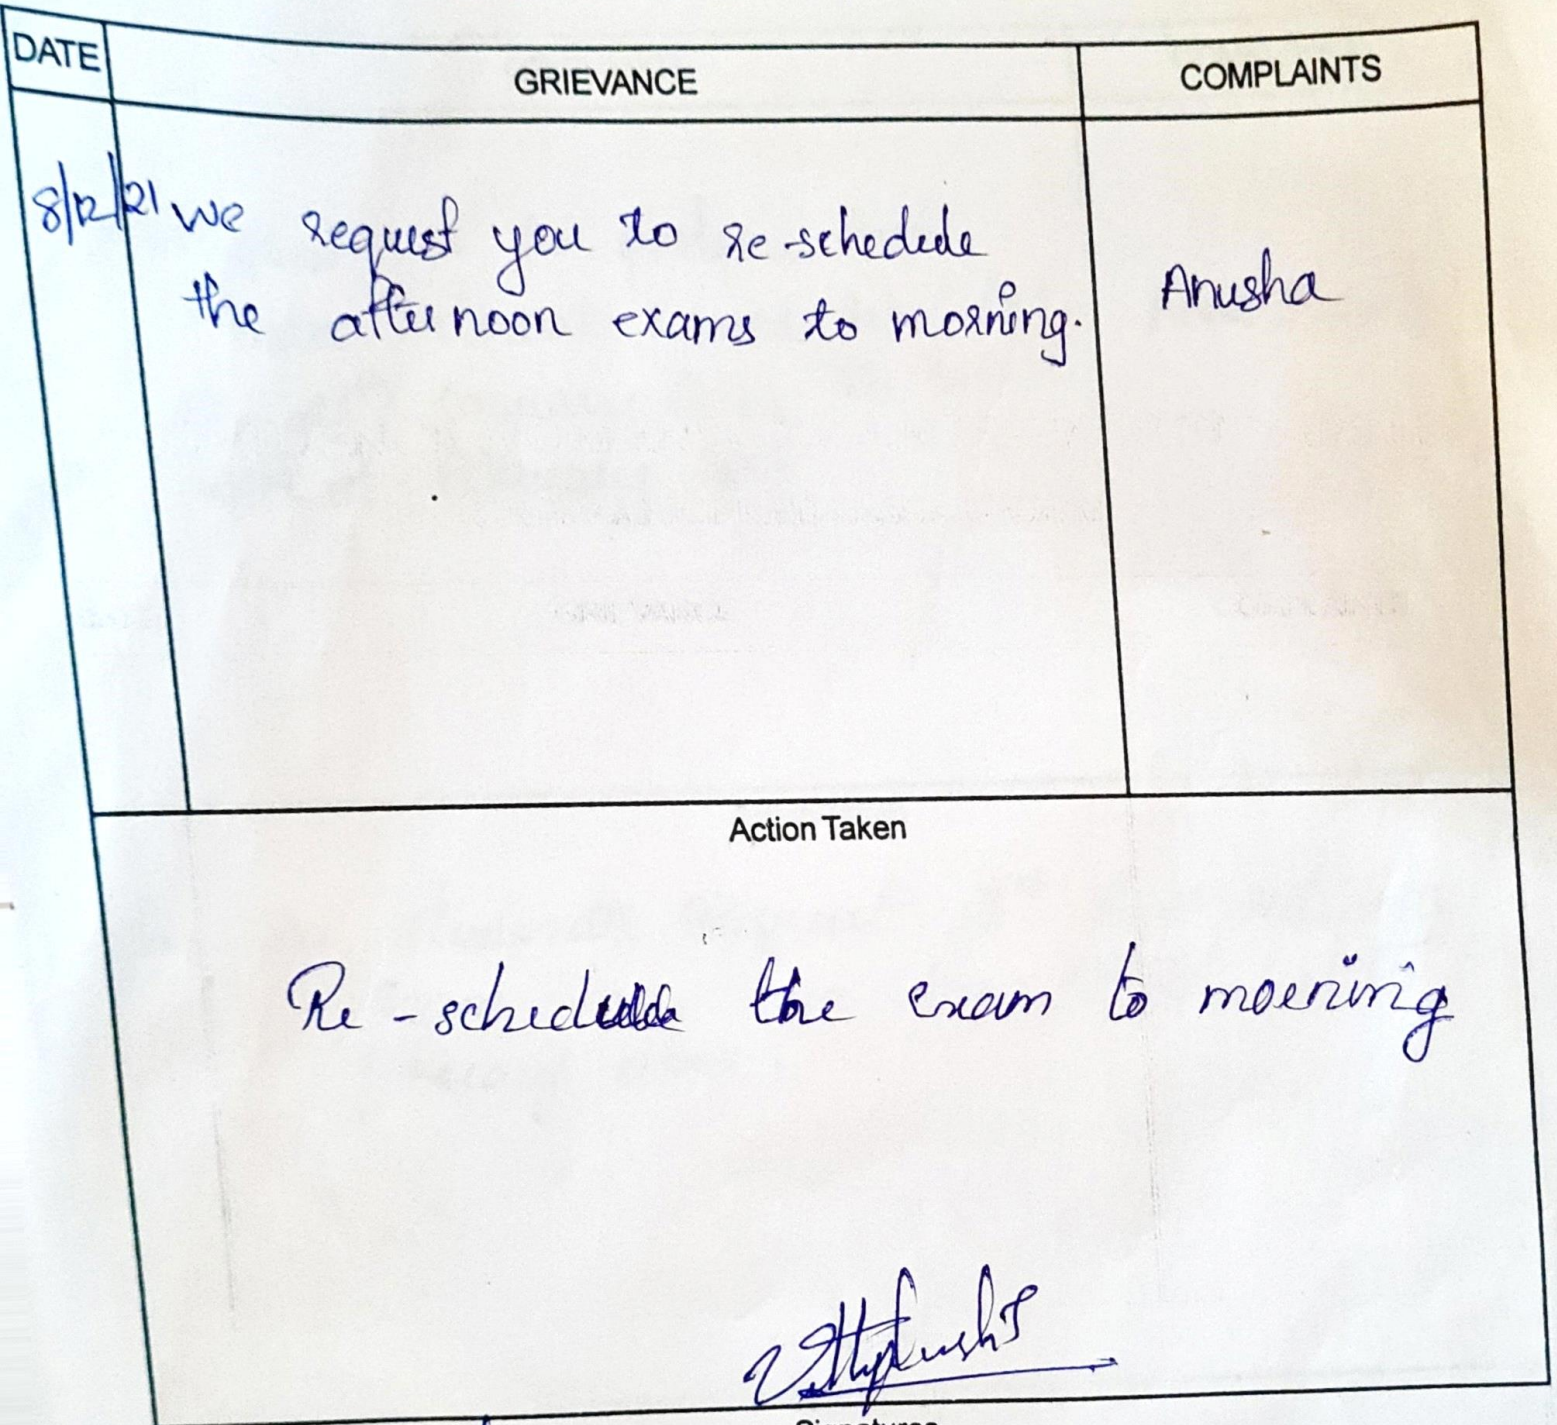 DATE GRIEVANCE COMPLAINTS
8/12/21 we request you to re-schedule
the afternoon exams to morning.
Anusha
Action Taken
Re-schedule the exam to morning